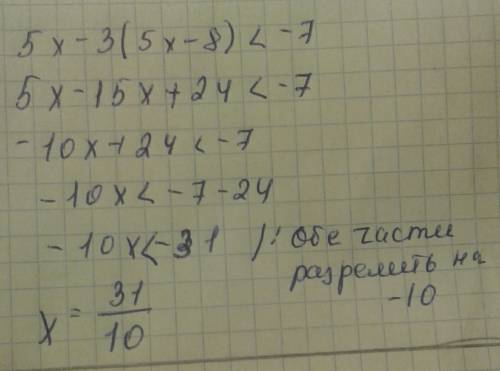 5x-3(5x-8)<-7
5x-15x+24<-7
-10x+24<-7
-10x<-7-24
-10x<-31 |: обе части
разделить на
-10
x = 31/10